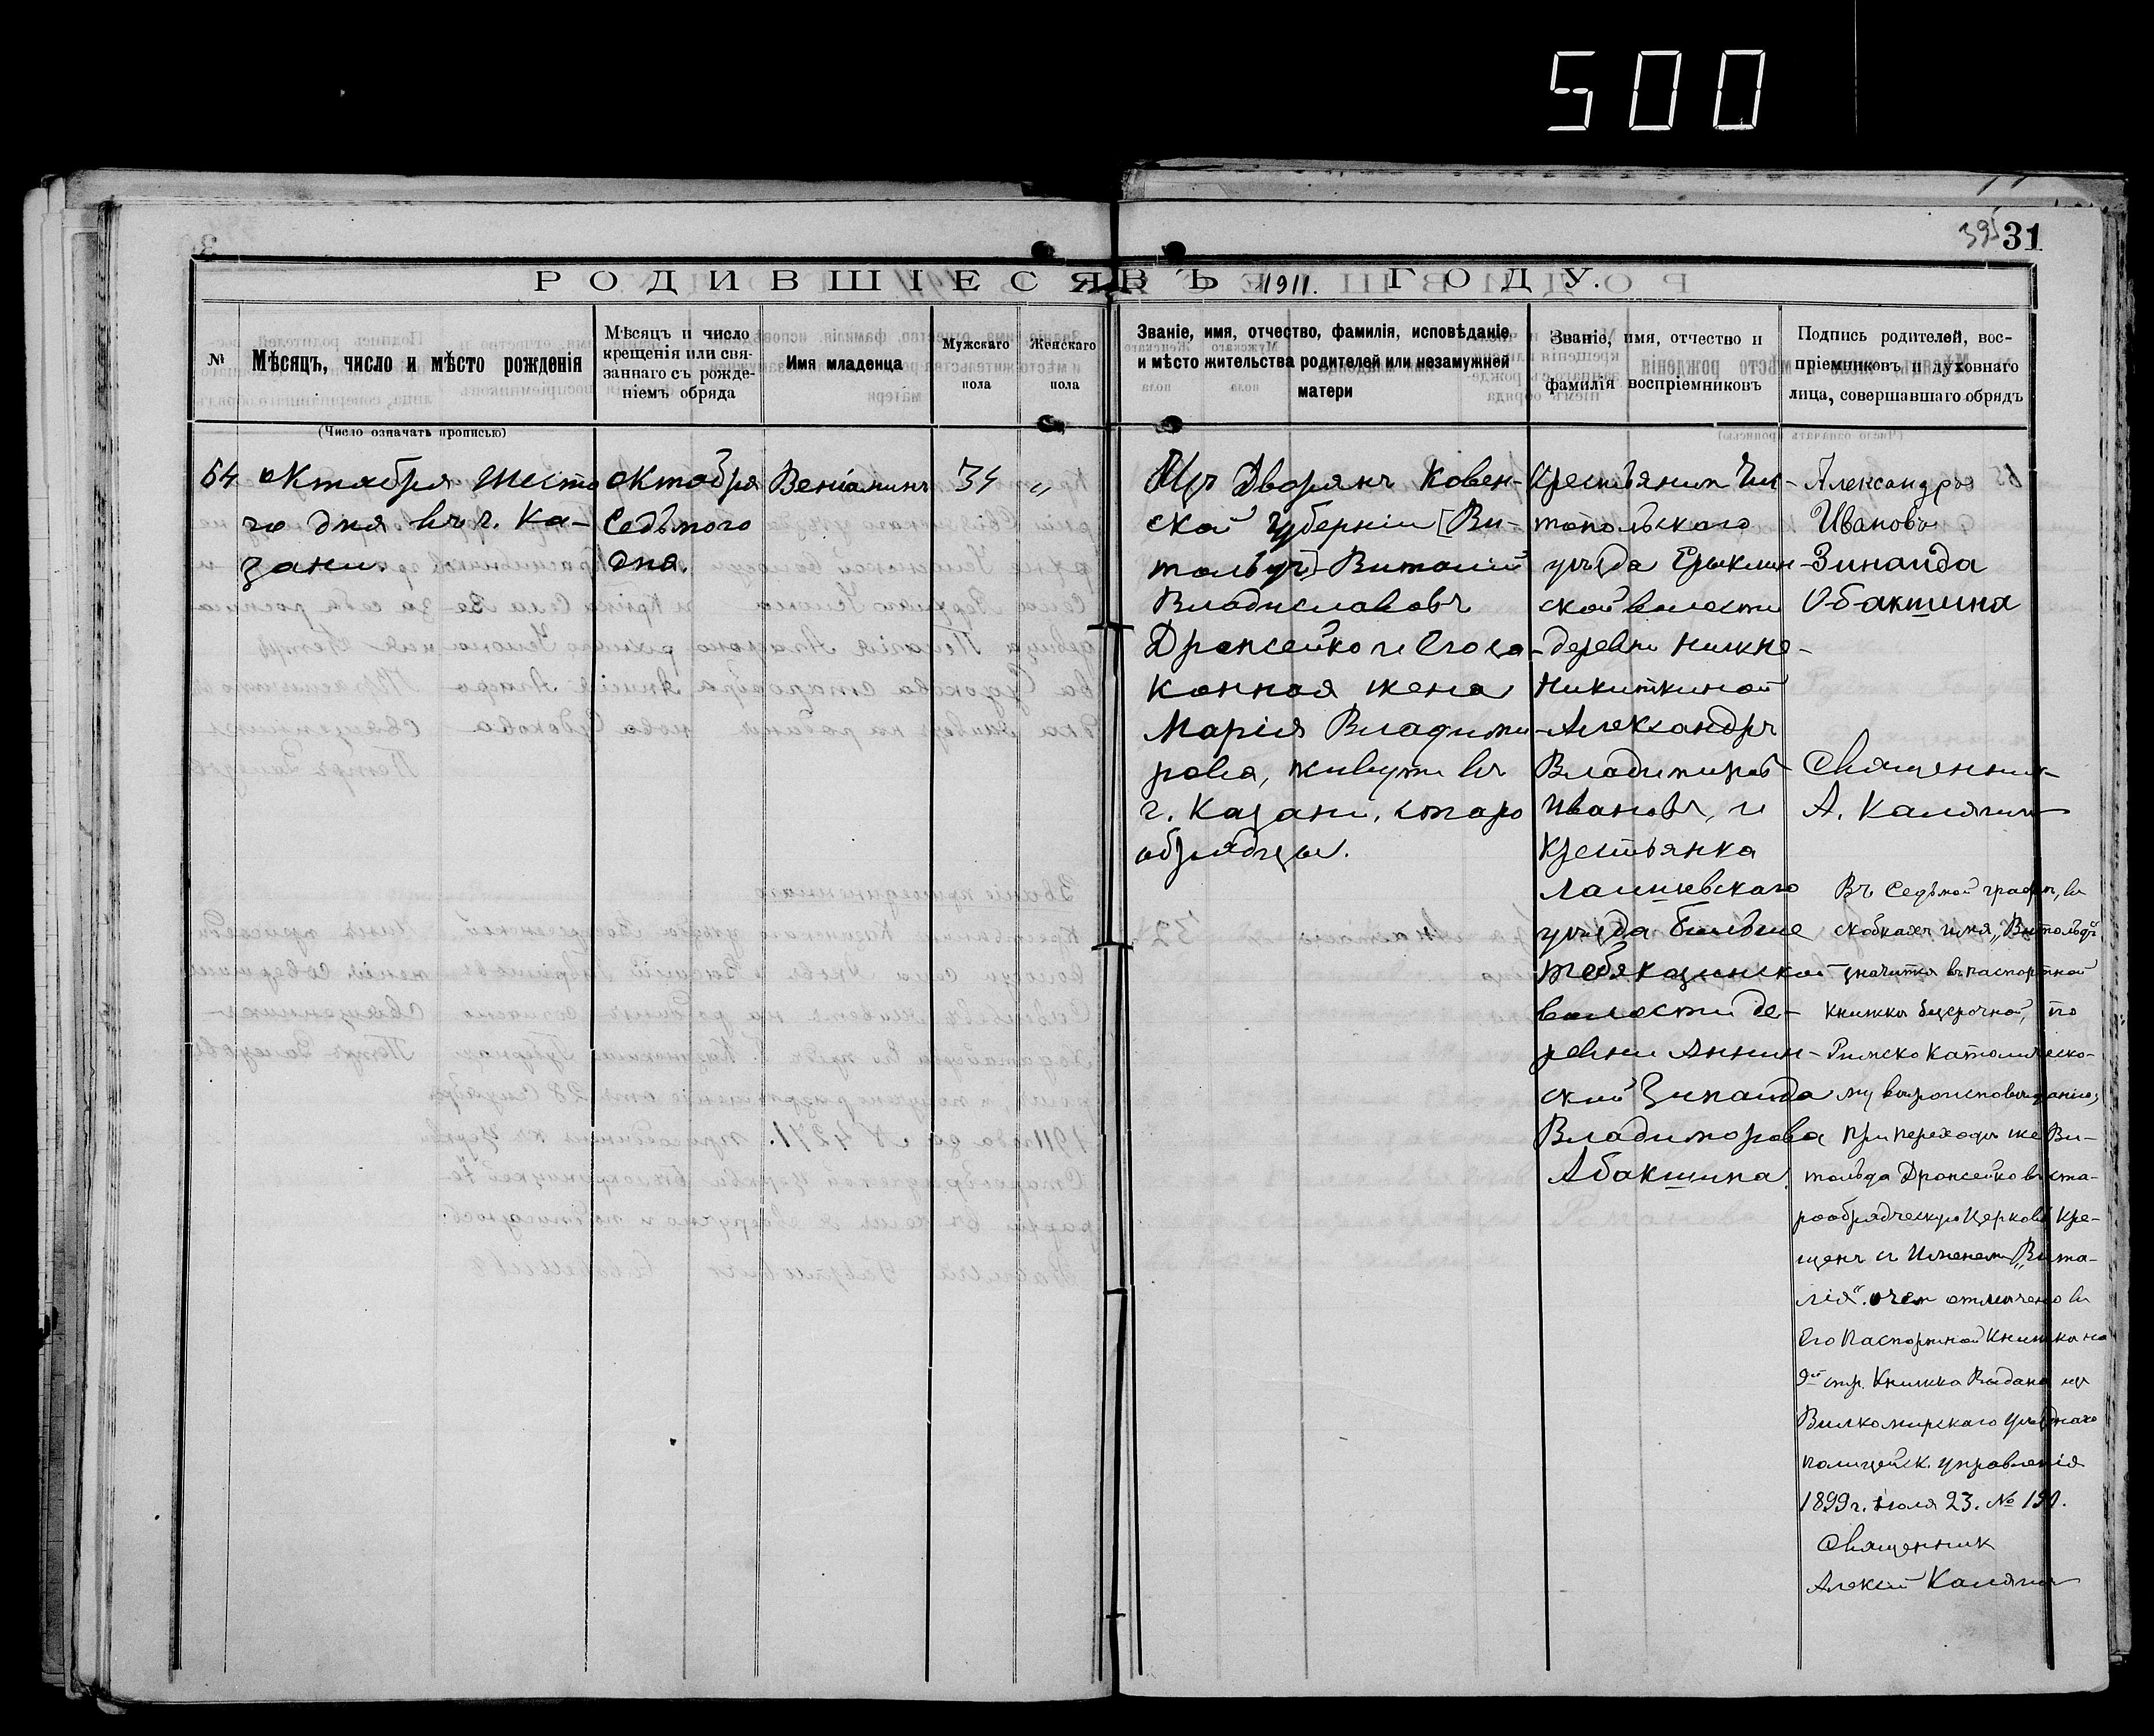 500
395 31
РОДИВШІЕСЯ ВЪ 1911. ГОДУ.
№
Мѣсяцъ, число и мѣсто рожденія
Мѣсяцъ и число
крещенія или свя-
заннаго съ рожде-
ніемъ обряда
Имя младенца
Мужскаго
пола
Женскаго
пола
Званіе, имя, отчество, фамилія, исповѣданіе
и мѣсто жительства родителей или незамужней
матери
Званіе, имя, отчество и
фамилія воспріемниковъ
Подпись родителей, вос-
пріемниковъ и духовнаго
лица, совершавшаго обрядъ
(Число означать прописью)
64
Октября шесто
го дня въ г. Ка-
зани.
Октября
Седьмого
дня.
Веніаминъ
34
"
Изъ Дворянъ Ковен-
ской губерніи [Ви-
тольдъ] Виталій
Владиславовъ
Дронсейко и Его за-
конная жена
Марія Владими
рова, живутъ въ
г. Казани, старо
обрядцы.
Крестьянин Чис-
топольскаго
уѣзда Ерыклин
ской волости
деревни Нижне-
Никиткиной
Александръ
Владиміров
Ивановъ, и
Крестьянка
Лаишевскаго
уѣзда Больше
волости де-
ревни Аннин-
ской Зинаида
Владимирова
Абакшина
Александръ
Ивановъ
Зинаида
Обакшина
Священник
А. Калягин
Въ Седьмой графѣ, въ
скобкахъ имя „Витольдъ"
значится въ паспортной
книжкѣ безсрочной, по
Римско Католическо-
му вѣроисповѣданію,
при переходѣ же Ви-
тольда Дронсейко въ ста-
рообрядческую Церковь Кре-
щенъ съ Именем „Вита-
лія". о чем отмѣчено въ
Его Паспортной Книжкѣ на
9й стр. Книжка Выдана из
Вилкомирскаго Уѣзднаго
полицейск. управленія
1899 г. іюля 23. № 190.
Священник
Алексій Калягин